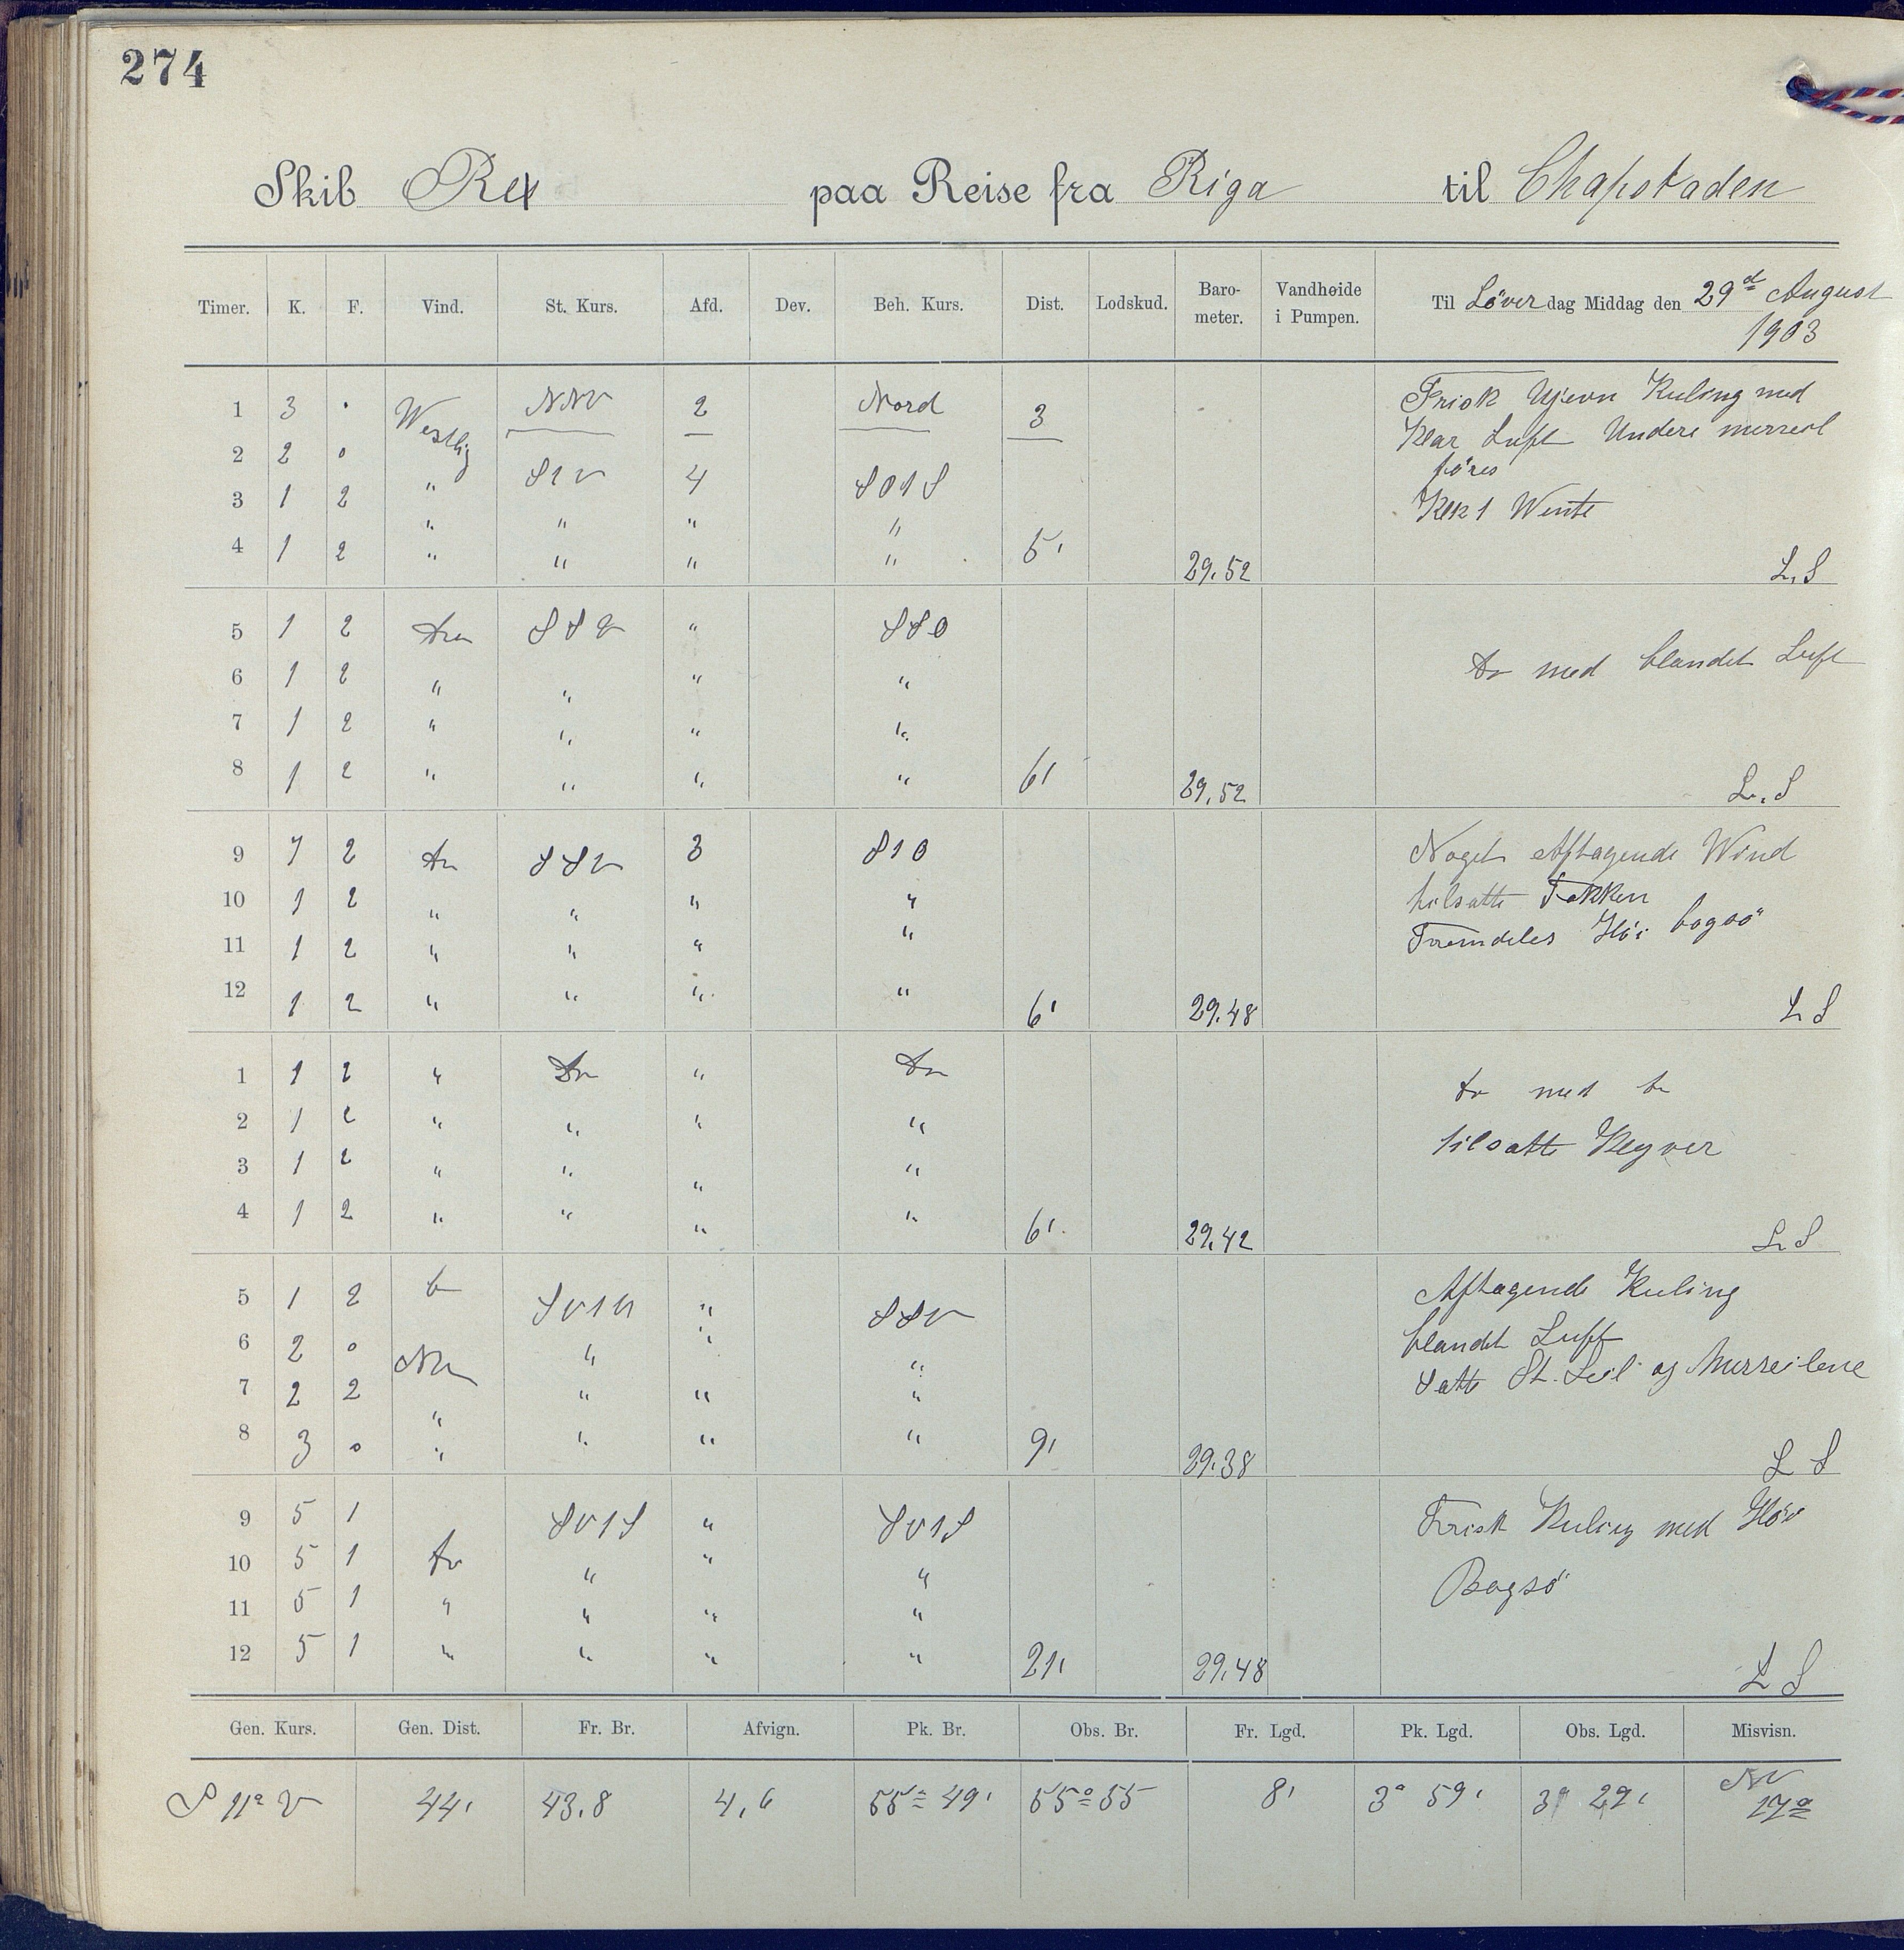 274
Skib Rex paa Reise fra Riga til Chapstaden
Timer. K. F. Vind. St. Kurs. Afd. Dev. Beh. Kurs. Dist. Lodskud. Baro-meter. Vandhøide i Pumpen. Til Löver dag Middag den 29d August 1903
1 3 · Westlig NNV 2 Nord 3 Frisk Ujevn Kuling med
2 2 0 Klar Luft Undere merseil
föres
3 1 2 " S1V 4 SO1S Klk 1 Wente
" " " "
4 1 2 " " " " 5' 29,52 L, S
5 1 2 Do SSV " SSO
6 1 2 " " " " Do med blandet Luft
7 1 2 " " " "
8 1 2 " " " " 6' 29,52 L. S
9 1 2 Do SSV 3 S1O Noget Aftagende Wind
10 1 2 " " " " tilsatte Fokken
11 1 2 " " " " Fremdeles Höi bogsö
12 1 2 " " " " 6' 29,48 L S
1 1 2 " Do " Do Do med Do
2 1 2 " " " "
3 1 2 " " " " tilsatte Klyver
4 1 2 " " " " 6' 29,42 L. S
5 1 2 Do " SSV Aftagende Kuling
6 2 0 " " " blandet Luft
7 2 2 " " " Satte St. Seil og Merseilene
8 3 0 " " " " 9' 29,38 L S
9 5 1 SV1S " SV1S Frisk Kuling med Höi
10 5 1 Do " " " Bogsö
11 5 1 " " " "
12 5 1 " " " " 21' 29,48 L S
Gen. Kurs. Gen. Dist. Fr. Br. Afvign. Pk. Br. Obs. Br. Fr. Lgd. Pk. Lgd. Obs. Lgd. Misvisn.
S 11° V 44' 43,8 4,6 55° 49' 55° 55 8' 3° 59' 3° 29' NV 17°